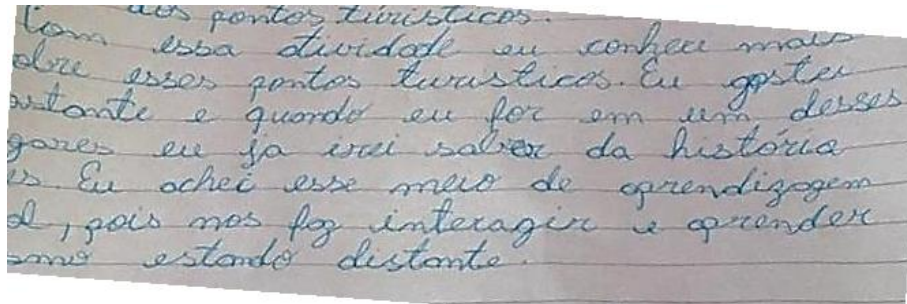 aos pontos turisticos.
Com essa atividade eu conheci mais
obre esses pontos turisticos. Eu gostei
astante e quando eu for em um desses
gares eu ja irei saber da história
is. Eu achei esse meio de aprendizagem
l, pois nos faz interagir e aprender
smo estando distante.